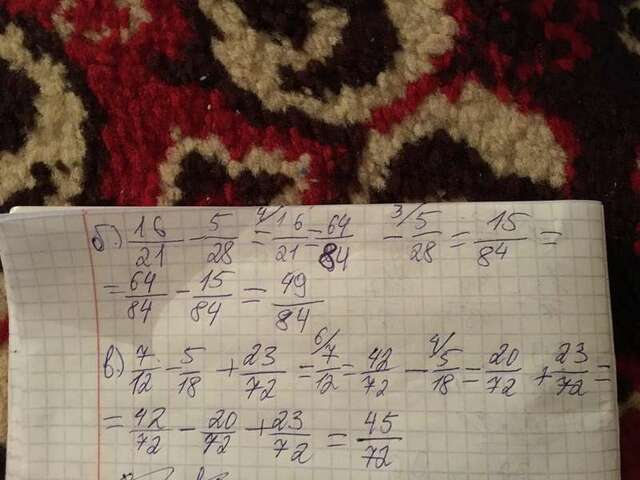 б) 16/21 - 5/28 = 4/16/21 = 64/84 - 3/5/28 = 15/84 =
= 64/84 - 15/84 = 49/84
в) 7/12 - 5/18 + 23/72 = 6/7/12 = 42/72 - 4/5/18 = 20/72 + 23/72 =
= 42/72 - 20/72 + 23/72 = 45/72